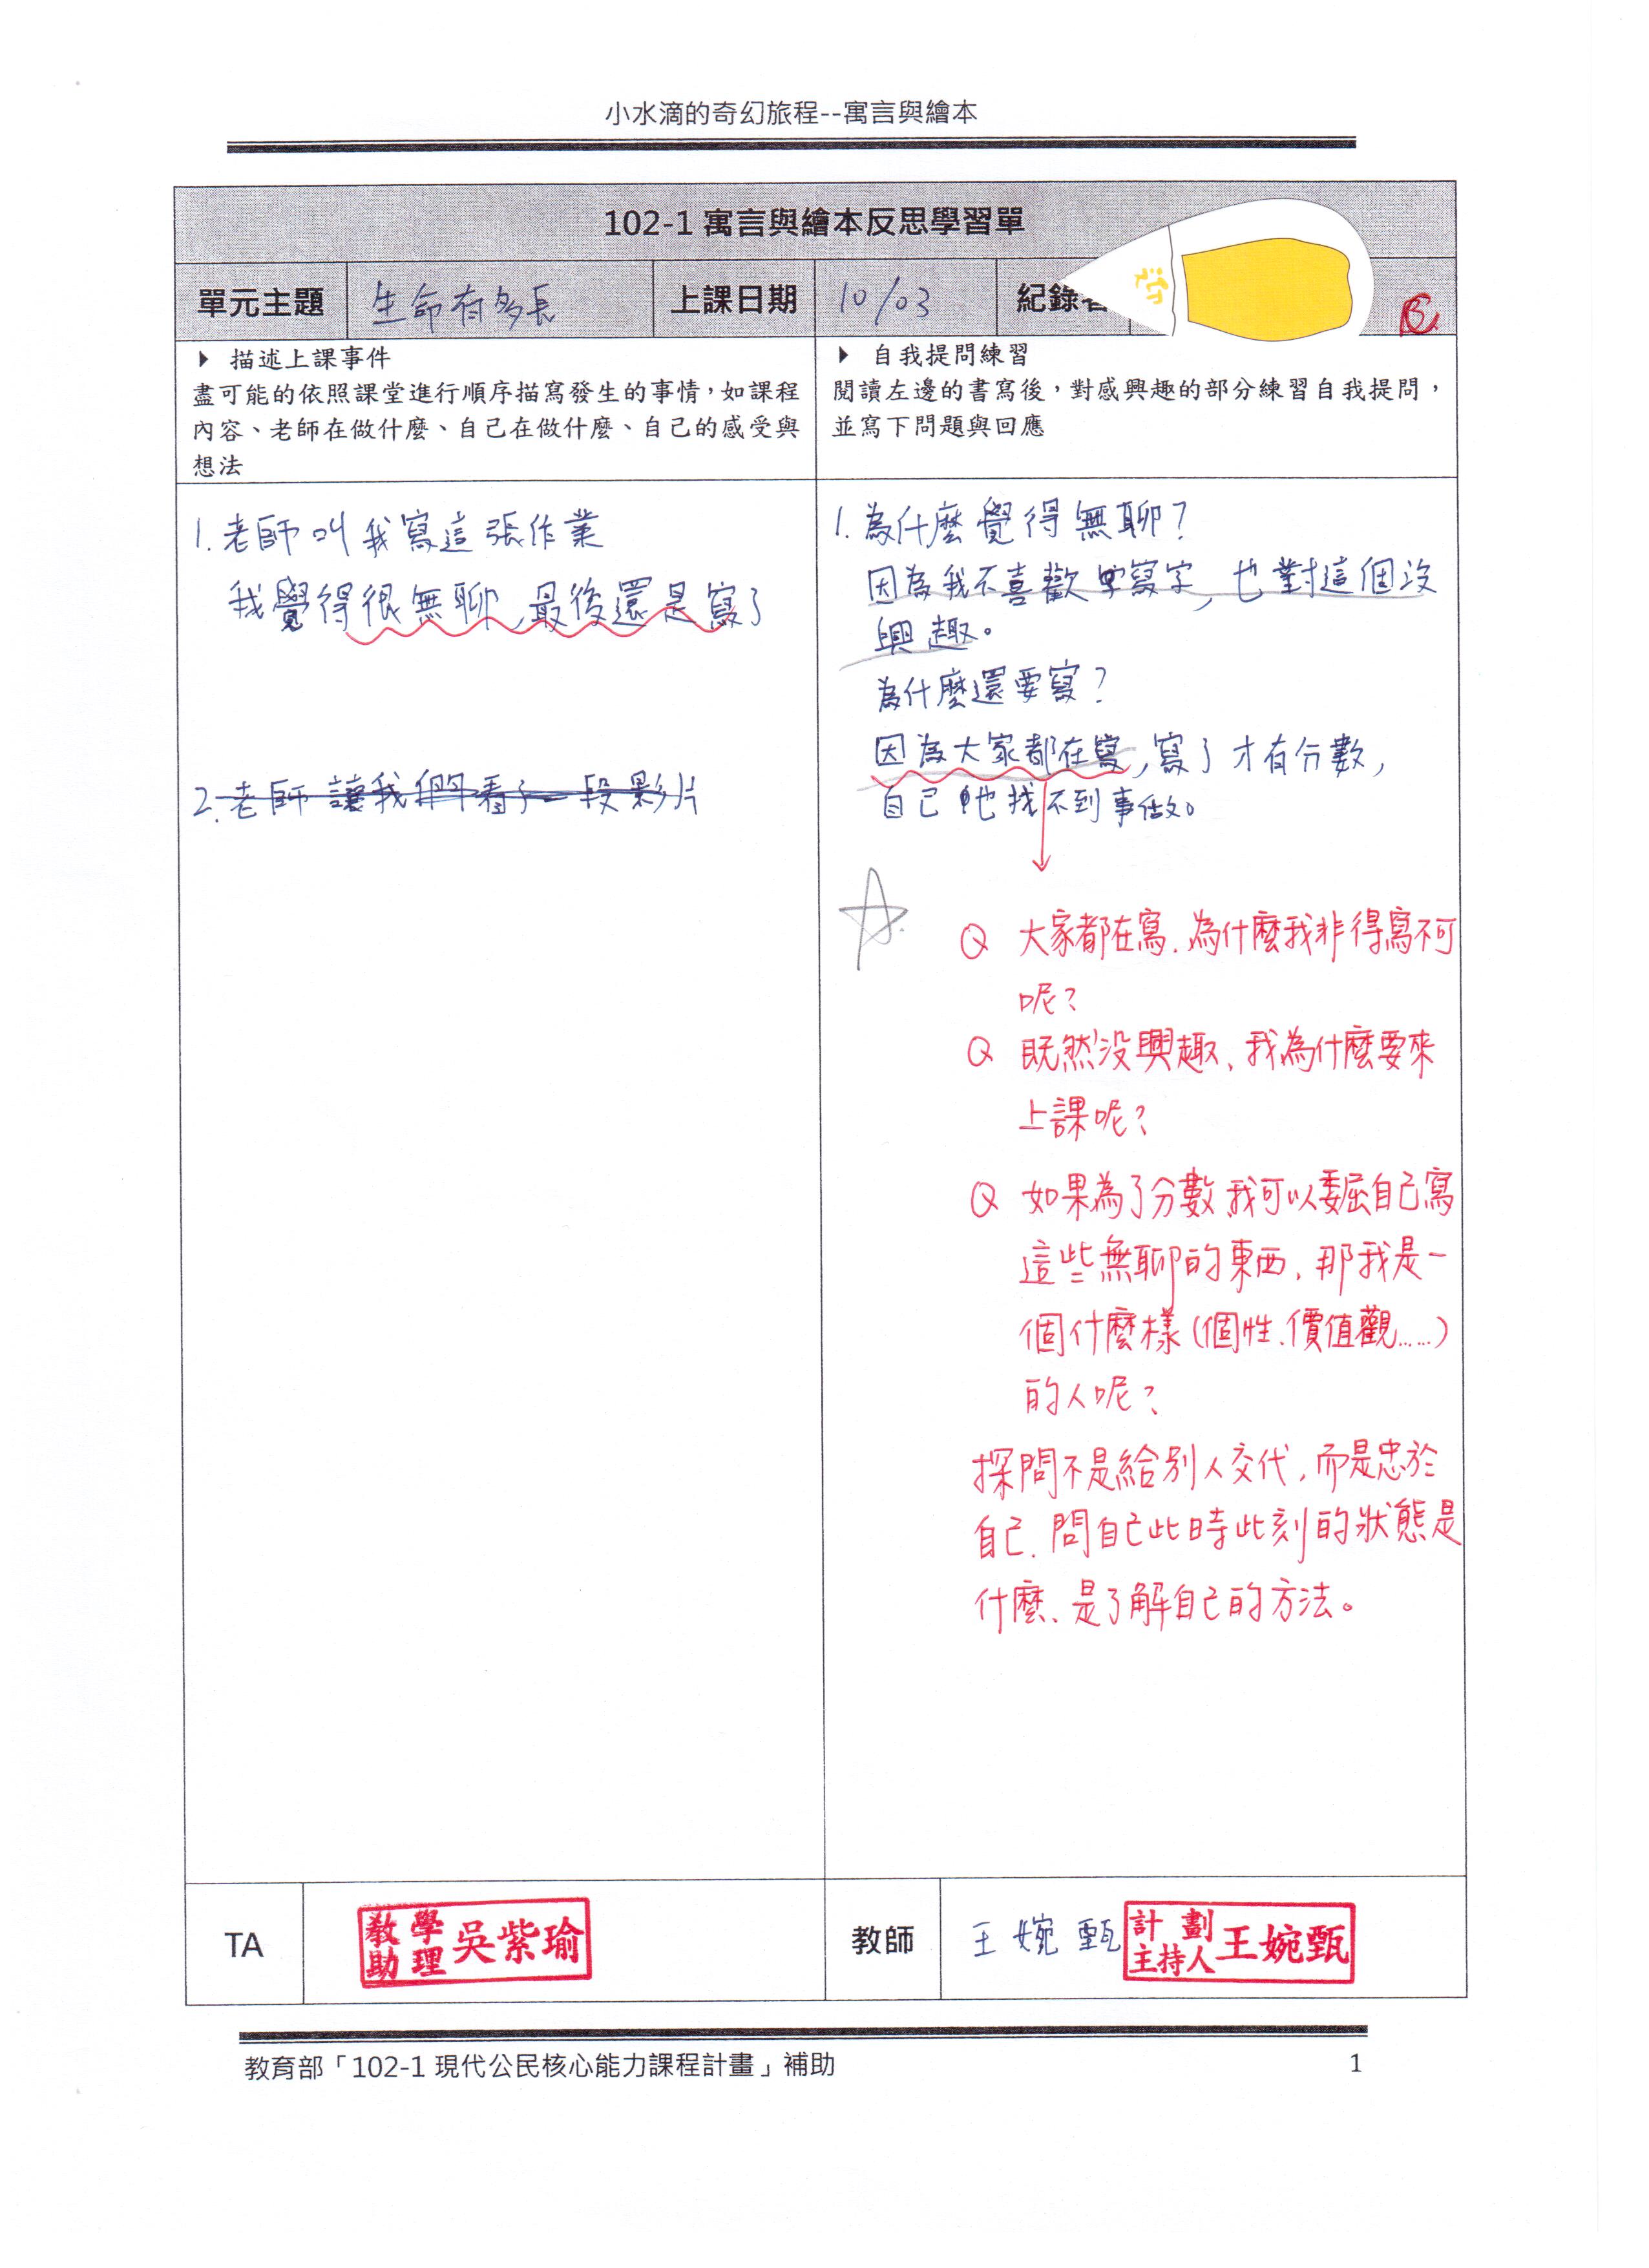 小水滴的奇幻旅程--寓言與繪本
102-1 寓言與繪本反思學習單
單元主題 生命有多長 上課日期 10/03 紀錄者
▶ 描述上課事件
盡可能的依照課堂進行順序描寫發生的事情，如課程
內容、老師在做什麼、自己在做什麼、自己的感受與
想法
▶ 自我提問練習
閱讀左邊的書寫後，對感興趣的部分練習自我提問，
並寫下問題與回應
1. 老師叫我寫這張作業
我覺得很無聊，最後還是寫了
2. 老師讓我們看了一段影片
1. 為什麼覺得無聊？
因為我不喜歡寫字，也對這個沒
興趣。
為什麼還要寫？
因為大家都在寫，寫了才有分數，
自己也找不到事做。
Q 大家都在寫、為什麼我非得寫不可
呢？
Q 既然沒興趣、我為什麼要來
上課呢？
Q 如果為了分數我可以委屈自己寫
這些無聊的東西、那我是一
個什麼樣(個性、價值觀……)
的人呢？
探問不是給別人交代，而是忠於
自己、問自己此時此刻的狀態是
什麼、是了解自己的方法。
TA 教學助理 吳紫瑜 教師 王婉甄 計劃主持人 王婉甄
教育部「102-1 現代公民核心能力課程計畫」補助 1